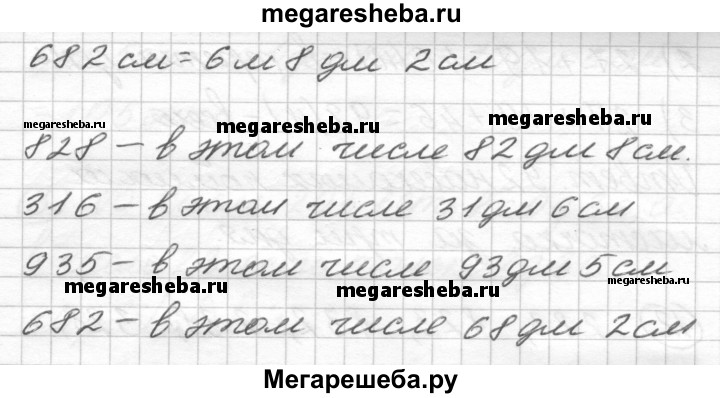 megaresheba.ru
682 см = 6 м 8 дм 2 см
megaresheba.ru
megaresheba.ru
828 – в этом числе 82 дм 8 см.
316 – в этом числе 31 дм 6 см
935 – в этом числе 93 дм 5 см
megaresheba.ru
megaresheba.ru
megaresheba.ru
682 – в этом числе 68 дм 2 см
Мегарешеба.ру